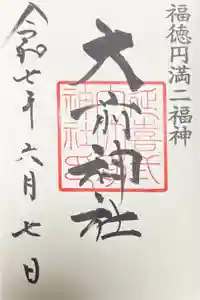 福徳円満二福神
大前神社
令和七年六月七日